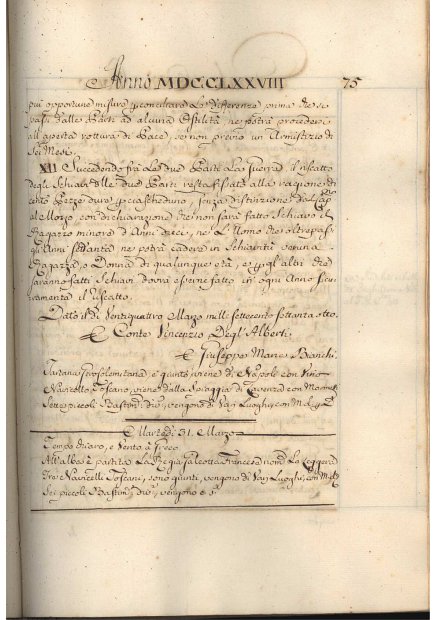 Anno MDCCLXXVIII 75
più opportune misure p conciliare le differenze prima che si
passi dalle Parti ad alcuna Ostilità, ne potrà procedersi
all'aperta rottura di Pace, se non previo un Armistizio di
Sei Mesi.
XII Succedendo frà le due Parti la Guerra, il riscatto
degli Schiavi delle due Parti resta fissato alla ragione di
cento Pezze dure p ciascheduno, senza distinzione dal Cap
al Mozzo, con dichiarazione che non sarà fatto Schiavo il
Ragazzo minore d'Anni dieci, ne l'Uomo che oltrepassi
gl'Anni settanta ne potrà cadere in Schiavitù veruna
Ragazza, o Donna di qualunque età, e p gl'altri che
saranno fatti Schiavi dovrà essere fatto in ogni Anno sicu
ramente il riscatto.
Dato il dì Ventiquattro Marzo mille settecento settanta otto.
Conte Vincenzio Degl'Alberti.
Giuseppe Marc. Bianchi.
Tartana Gerosolemitana è giunta, viene di Napoli con Vino
Navicello Toscano, viene dalla Spiaggia di Lavenza con Marmi
Sette piccoli Bastim. div., vengono di Varj Luoghi, con M.
Martedì 31. Marzo
Tempo chiaro, e Vento a freco.
All'alba è partita La Regia Galeotta Francese nom. La Leggera
Trè Navicelli Toscani, sono giunti, vengono di Varj Luoghi, con M.
Sei piccoli Bastim. div., vengono